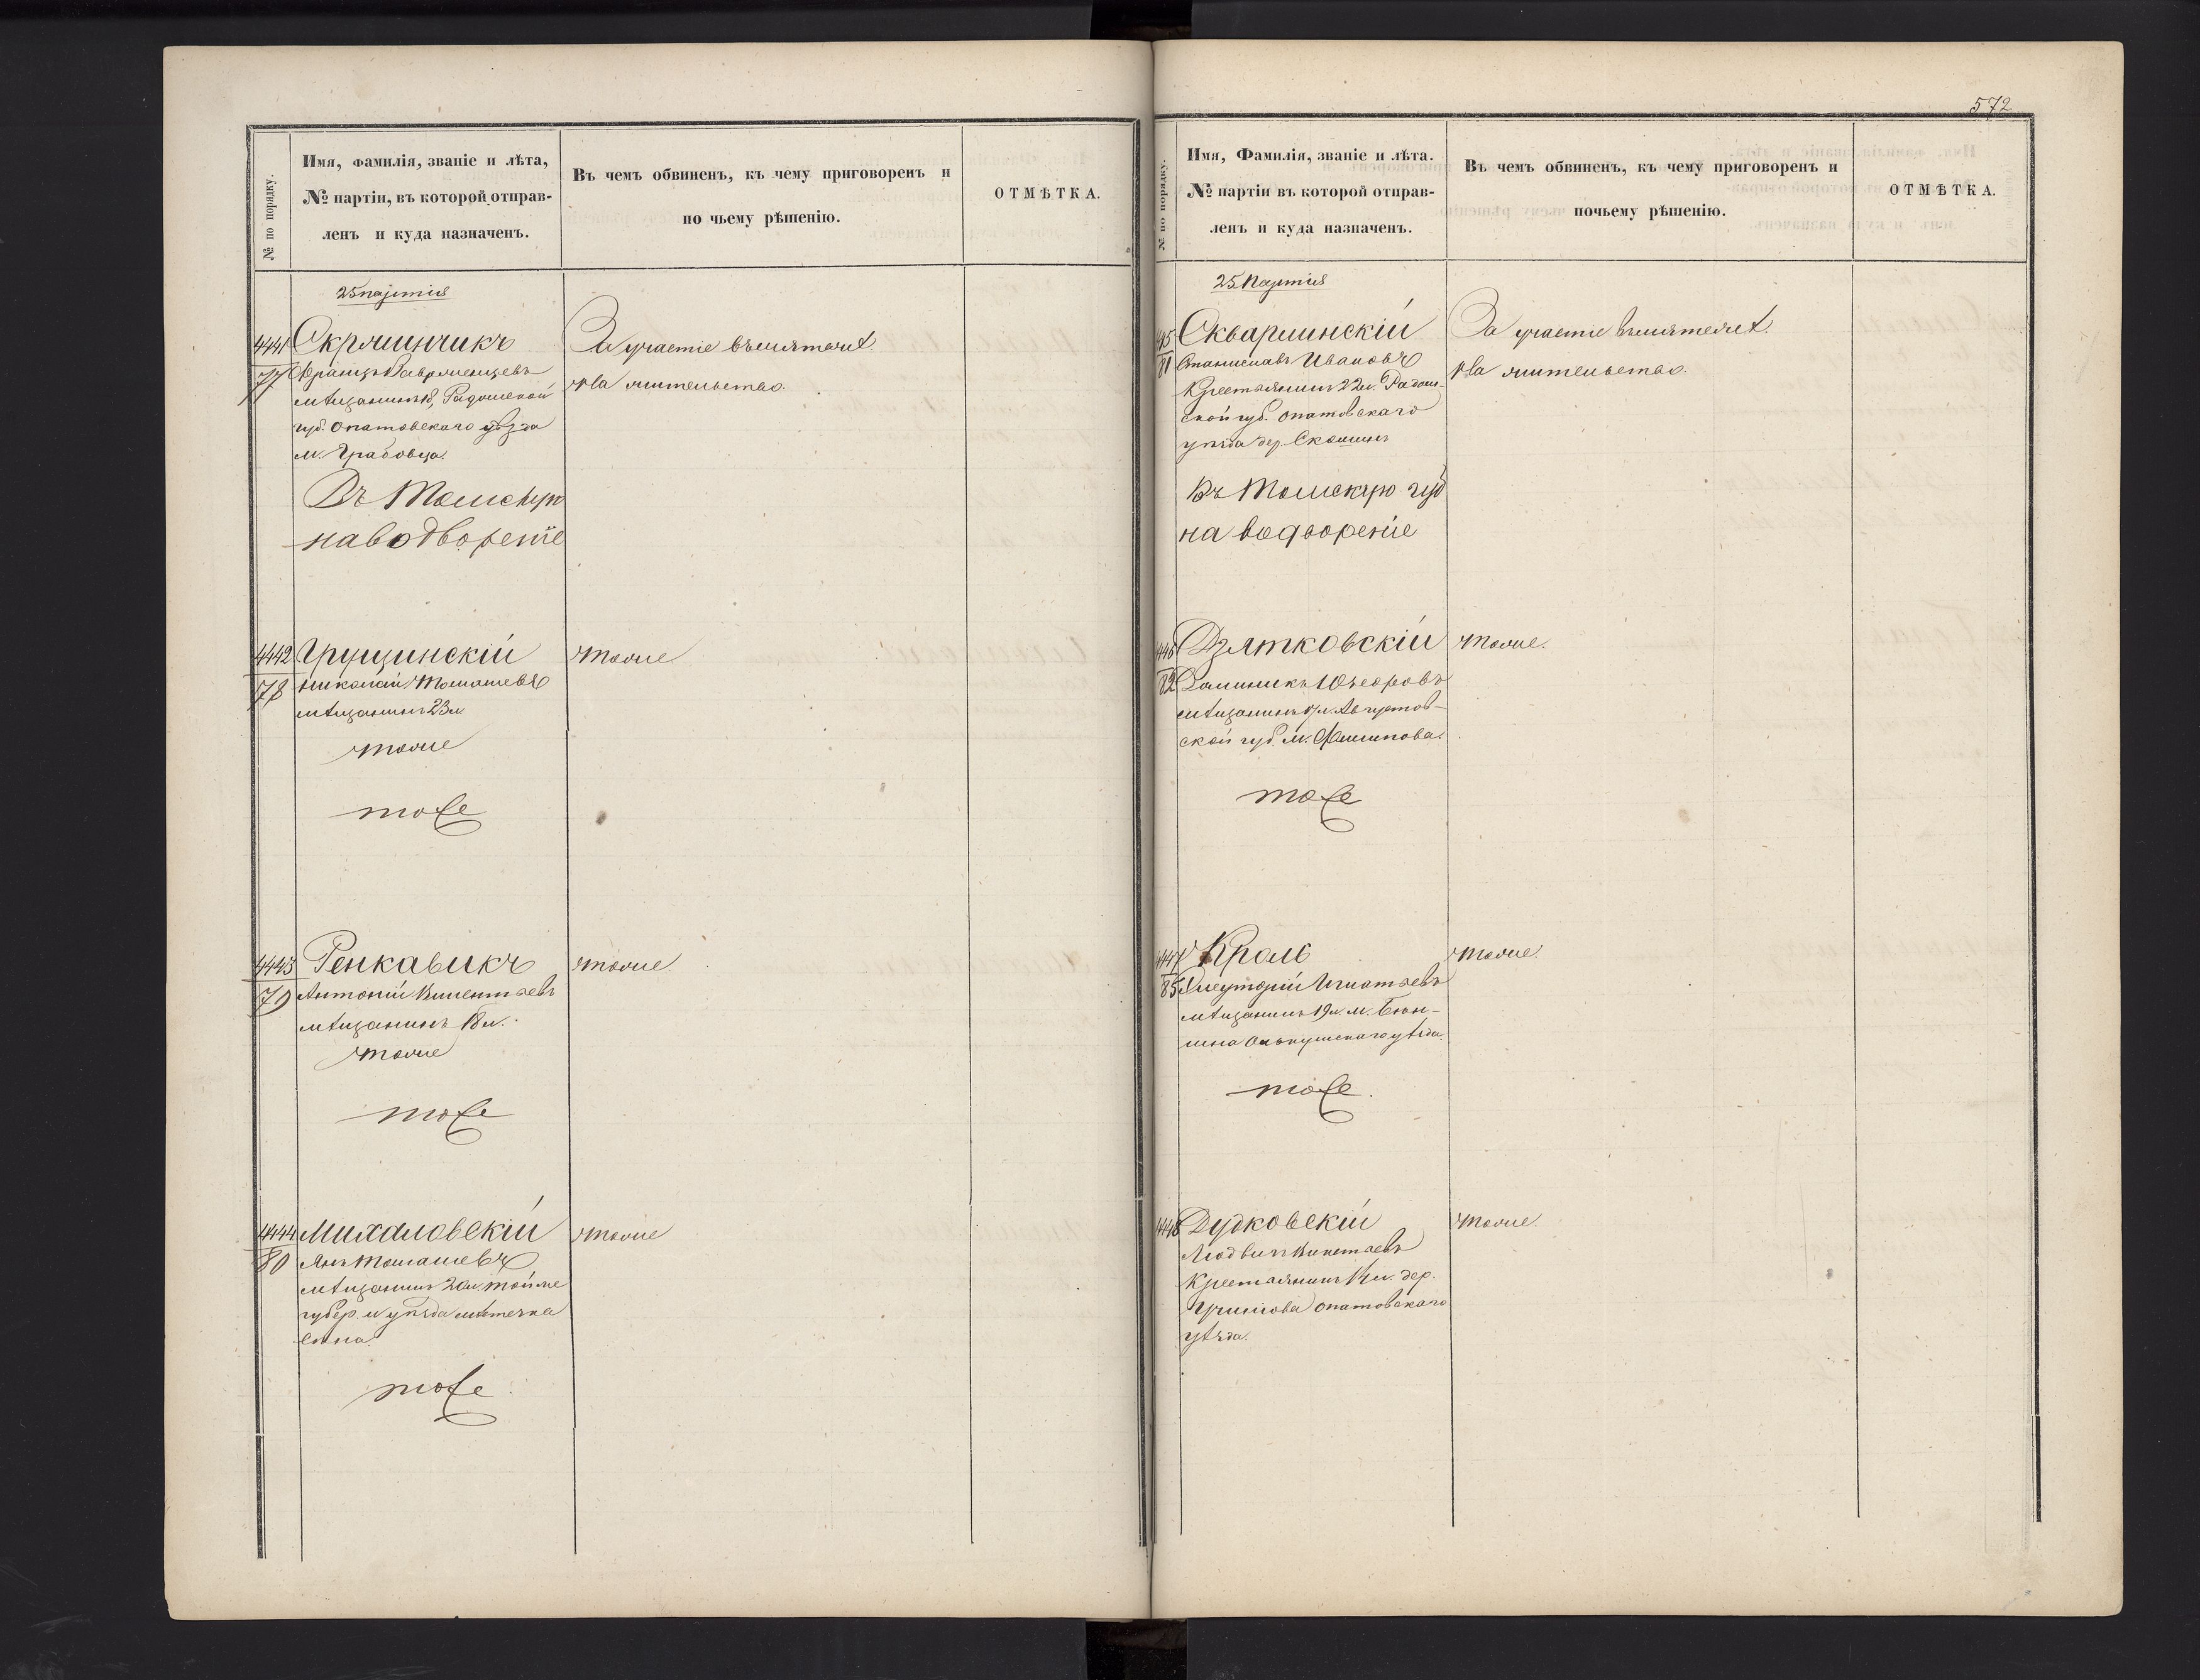 572
№ по порядку.
Имя, фамилія, званіе и лѣта,
№ партіи, въ которой отправ-
ленъ и куда назначенъ.
Въ чемъ обвиненъ, къ чему приговоренъ и
по чьему рѣшенію.
ОТМѢТКА.
25 партія
4441
77
Скрминчикъ
Францъ Лаврменцевъ
мѣщанинъ 18, Радомской
губ. Опатовскаго уѣзда
м. Грабовца.
Въ Томскую
на водвореніе
За участіе въ мятежѣ.
рва жительство.
4442
78
Грущинскій
Николай Томашевъ
мѣщанинъ 23 л.
тоже
тоже
тоже
4443
79
Ренкавикъ
Антоній Викентьевъ
мѣщанинъ 18 л.
тоже
тоже
тоже.
4444
80
Михаловскій
Янъ Томашевъ
мѣщанинъ 20 л. той же
губер. и уѣзда мѣстечка
Сѣна.
тоже.
тоже
№ по порядку.
Имя, Фамилія, званіе и лѣта.
№ партіи въ которой отправ-
ленъ и куда назначенъ.
Въ чемъ обвиненъ, къ чему приговоренъ и
почьему рѣшенію.
ОТМѢТКА.
25 Партія
81
Скварминскій
Станиславъ Ивановъ
Крестьянинъ 22 л. Радом-
ской губ. Опатовскаго
уѣзда дер.
Въ Томскую губ
на водвореніе
За участіе въ мятежѣ.
рва жительство.
82
Дзятковскій
Доминикъ
мѣщанинъ Августов-
ской губ. м. Филипова.
тоже
тоже.
4447
Кроль
Игнатьевъ
мѣщанинъ 19 л. м.
Олькушскаго уѣзда.
тоже.
тоже.
4448
Дудковскій
Людвигъ Викентьевъ
Крестьянинъ дер.
Опатовскаго
уѣзда.
тоже.